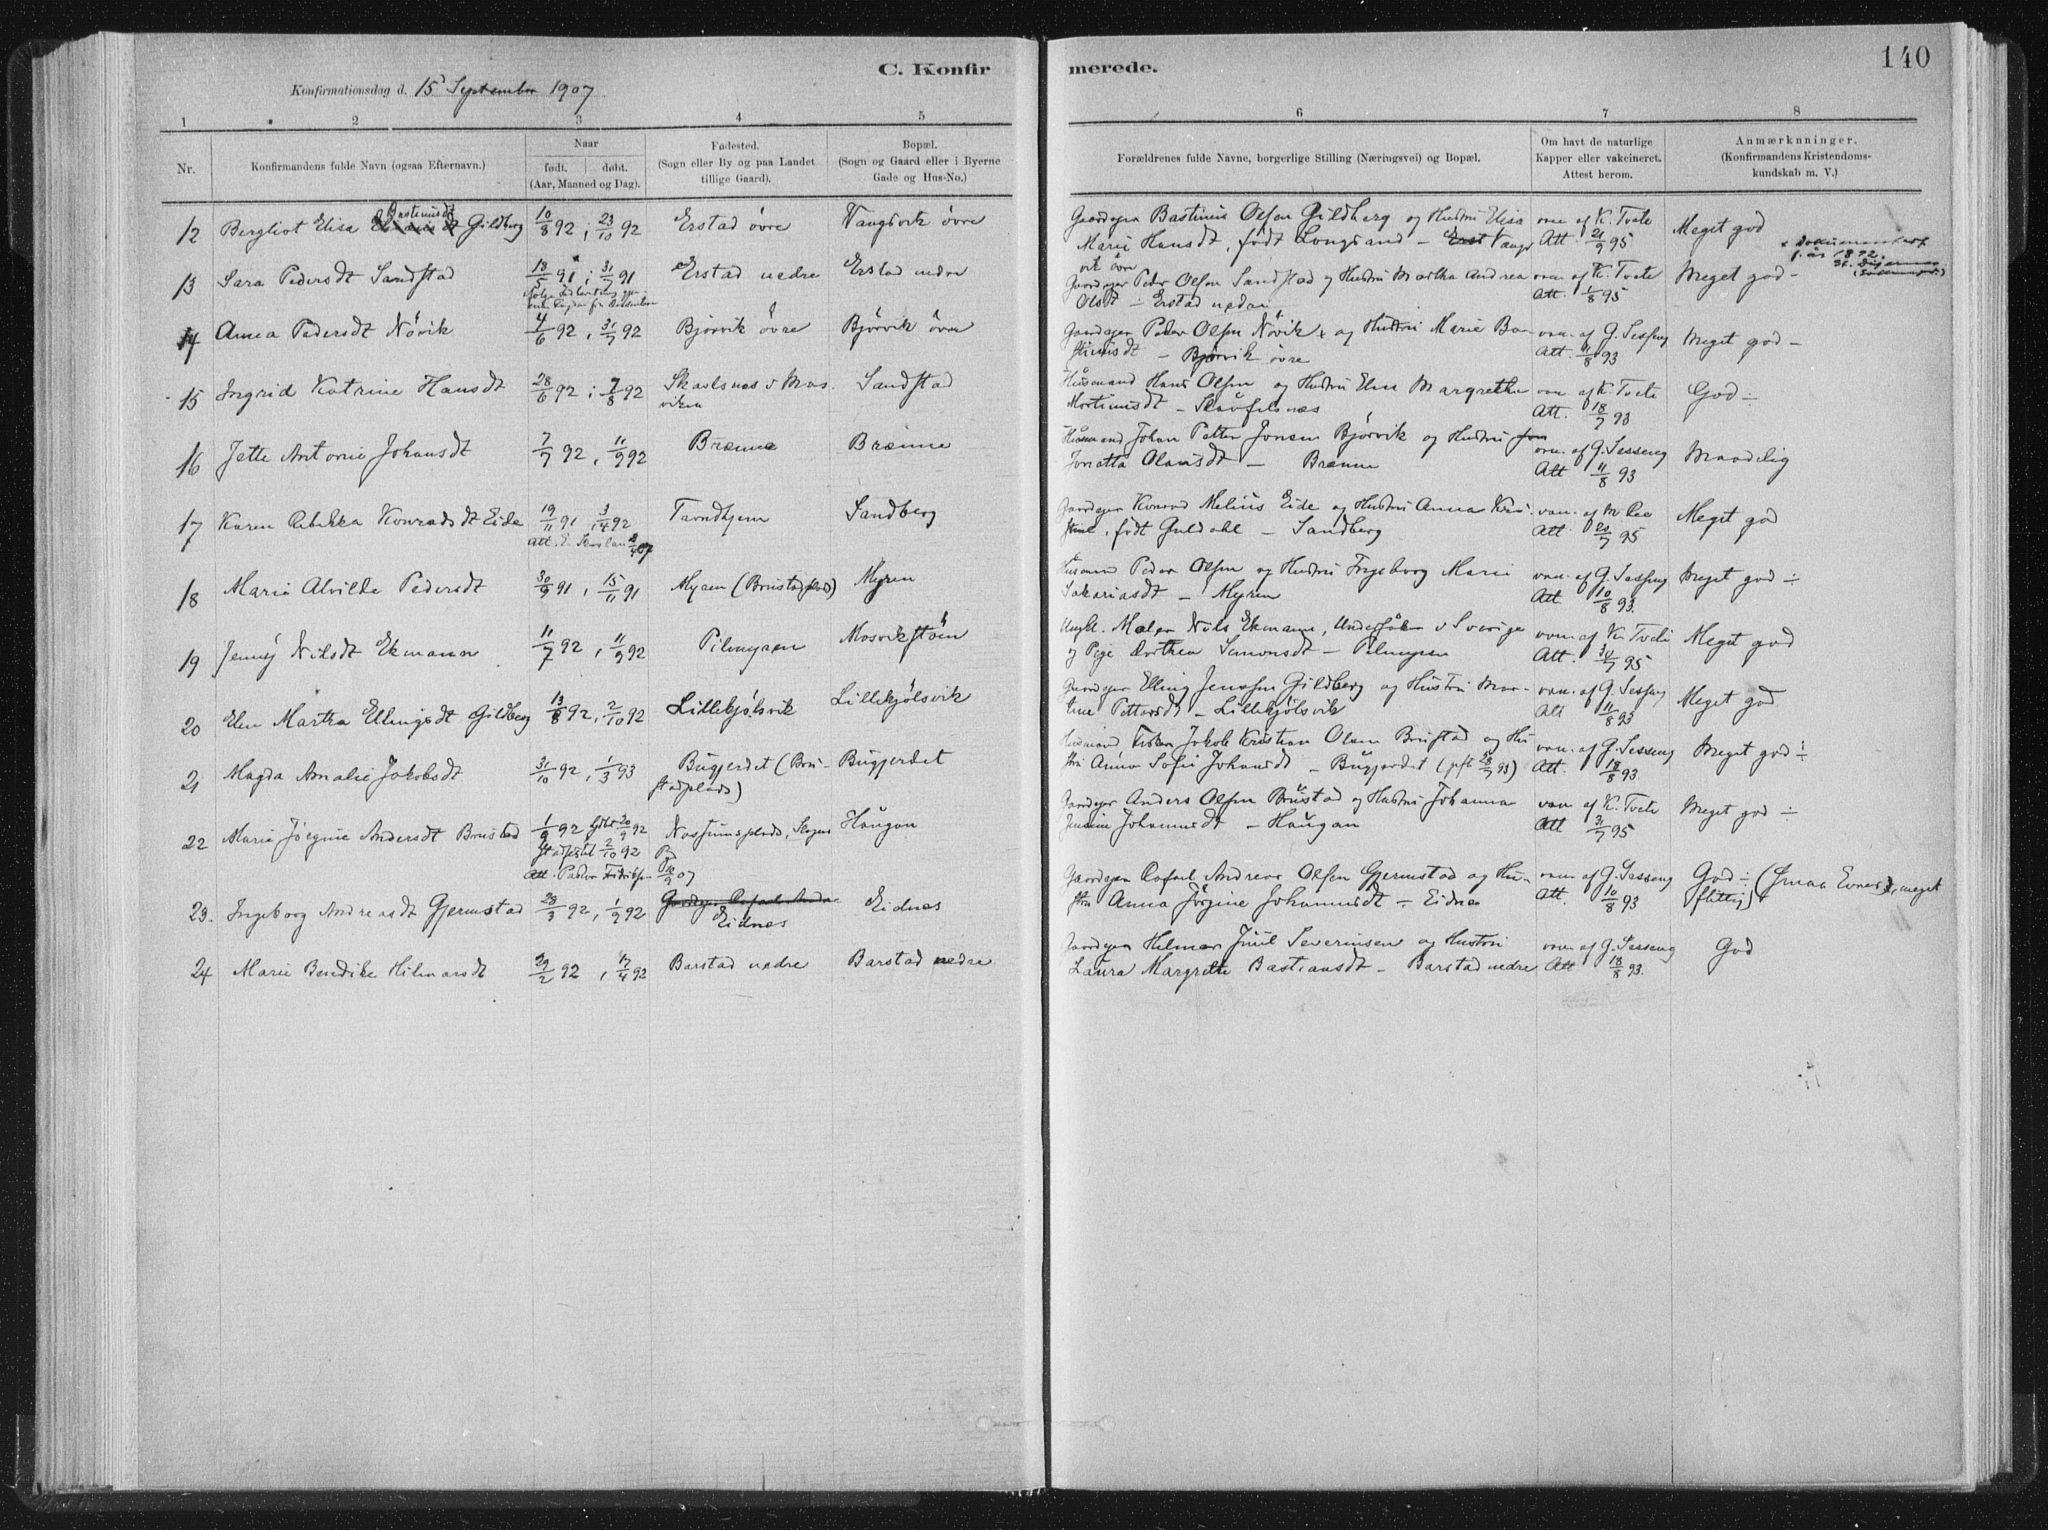 C. Konfirmerede.
140
Konfirmationsdag d. 15 September 1907
1 2 3 4 5 6 7 8
Nr.
Konfirmandens fulde Navn (ogsaa Efternavn.)
Naar
født. døbt.
(Aar, Maaned og Dag).
Fødested.
(Sogn eller By og paa Landet
tillige Gaard).
Bopæl.
(Sogn og Gaard eller i Byerne
Gade og Hus-No.)
Forældrenes fulde Navne, borgerlige Stilling (Næringsvei) og Bopæl.
Om havt de naturlige
Kapper eller vakcineret.
Attest herom.
Anmærkninger.
(Konfirmandens Kristendoms-
kundskab m. V.)
12 Bergliot Elisa Bastinusdt Gildberg 10/8 92, 23/10 92 Erstad övre Vangsvik övre Gaardeger Bastinus Olsen Gildberg og Hustru Elisa vac. af K. Tvete Meget god
Marie Hansdt, født Longsand – Vangs Att. 21/9 95
vik övre
13 Sara Pedersdt Sandstad 13/5 91, 31/7 91 Erstad nedre Erstad nedre Gaardeger Peder Olsen Sandstad og Hustru Martha Andrea vac. af K. Tvete Meget god –
Olsdt – Erstad nedre Att. 1/8 95
14 Anna Pedersdt Növik 4/6 92, 31/7 92 Bjorvik övre Bjørvik övre Gaardeger Peder Olsen Növik og Hustru Marie Ba- vac. af G. Sesseng Meget god –
stinusdt – Bjørvik övre Att. 11/8 93
15 Ingrid Katrine Hansdt 28/6 92, 7/8 92 Sandstad Husmand Hans Olsen og Hustru Elen Margrethe vac. af K. Tvete God ÷
viken
Mortinusdt – Att. 18/7 93
16 Jette Antonie Johansdt 7/7 92, 11/9 92 Brænne Brænne Husmand Johan Petter Jonsen Bjørvik og Hustru vac. af G. Sesseng Maadelig
Jonetta Olausdt – Brænne Att 11/8 93
17 Karen Rebekka Konradsdt Eide 19/11 91, 3/4 92 Trondhjem Sandberg Gaardeger Konrad Melius Eide og Hustru Anna Kri- Meget god
stine, født Guldahl – Sandberg Att 20/7 95
18 Marie Alvilde Pedersdt 30/9 91, 15/11 91 Myren (Brustadplads) Myren Husmand Peder Olsen og Hustru Ingeborg Marie vac. af G. Sesseng Meget god ÷
Sakariasdt – Myren Att 10/8 93.
19 Jenny Nilsdt Ekmann 11/7 92, 11/9 92 Pilmyren Ungk. Maler Nils Ekmann, Sverige vac. af K. Tvete Meget god
og Pige Dorthea Simonsdt – Pilmyren Att. 95
20 Elen Martha Ellingsdt Gildberg 13/8 92, 2/10 92 Lillekjølsvik Lillekjølsvik Gaardeger Elling Jensen Gildberg og Hustru Mar- vac. af G. Sesseng Meget god
tine Pettersdt – Lillekjølsvik Att 11/8 93
21 Magda Amalie Jakobsdt 31/10 92, 1/3 93 Bugjerdet (Bru- Bugjerdet Husmand Fisker Jakob Kristian Olsen Brustad og Hu vac. af G. Sesseng Meget god ÷
stadplads) stru Anna Sofie Johansdt – Bugjerdet Att. 18/8 93
22 Marie Jörgine Andersdt Brustad 1/9 92 Haugan Gaardeger Anders Olsen Brustad og Hustru Johanna vac af K. Tvete Meget god ÷
stadfæstet 2/10 92 Johannesdt – Haugan Att 31/7 95
Att. Pastor Fredriksen 07
23. Ingeborg Andreasdt Gjermstad 28/3 92, 1/9 92 Eidnes Eidnes Gaardeger Rafael Andreas Olsen Gjermstad og Hu- vac. af G. Sesseng God ÷ (Smaa Evner, meget
stru Anna Jörgine Johannesdt – Eidnes Att. 10/8 93 flittig)
24 Marie Bendikte Hilmarsdt 29/2 92, 17/4 92 Barstad nedre Barstad nedre Gaardeger Hilmar Juul Severinsen og Hustru vac. af G. Sesseng God
Laura Margrethe Bastiansdt – Barstad nedre Att 18/8 93.